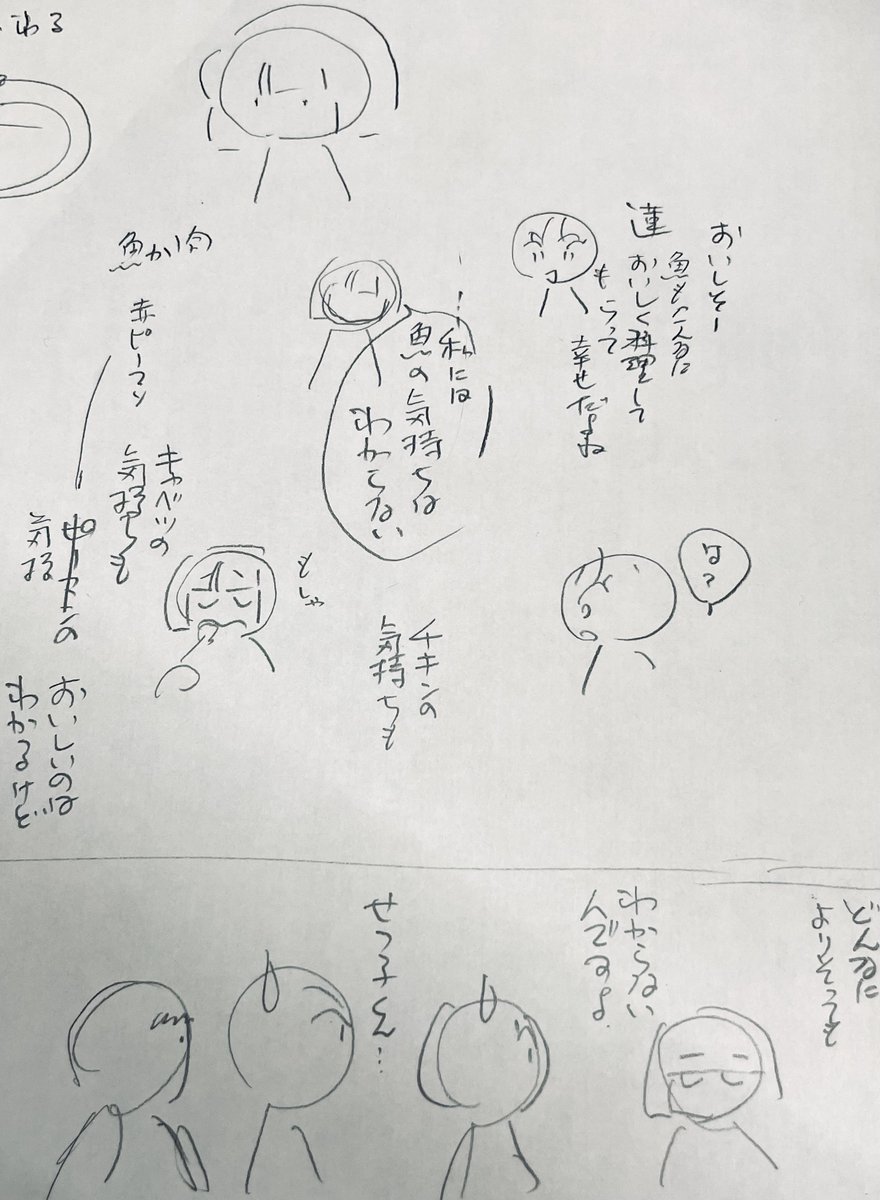 わる
おいしそー
蓮
魚もこんなに
おいしく料理して
もらって
幸せだよね
…私には
魚の気持ちは
わからない
は?
チキンの
気持ちも
もしゃ
魚か肉
赤ピーマン
キャベツの
気持ちも
気持
おいしいのは
わかるけど
どんなに
よりそっても
わからない
んですよ
せつ子くん…